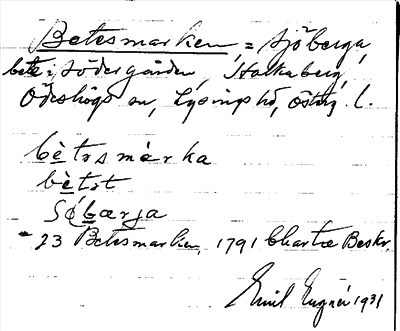 Betesmarken, = Sjöberga,
bete i Södergården, Stolkaberg,
Ödeshögs sn, Lysings hd, Östg. l.
bètɘsmàrka
bètɘt
Sǿbærja
- 23 Betesmarken, 1791 Charta Beskr.
Emil 1931